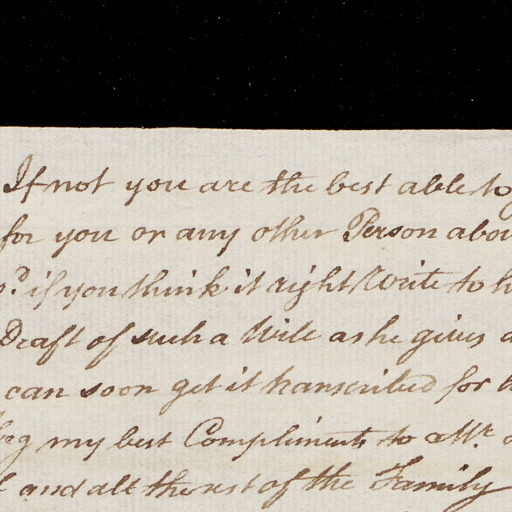 If not you are the best able to
for you or any other Person abou
if you think it right Write to h
Draft of such a Will as he gives
can soon get it transcribed for
beg my best Compliments to Mr.
and all the rest of the Family